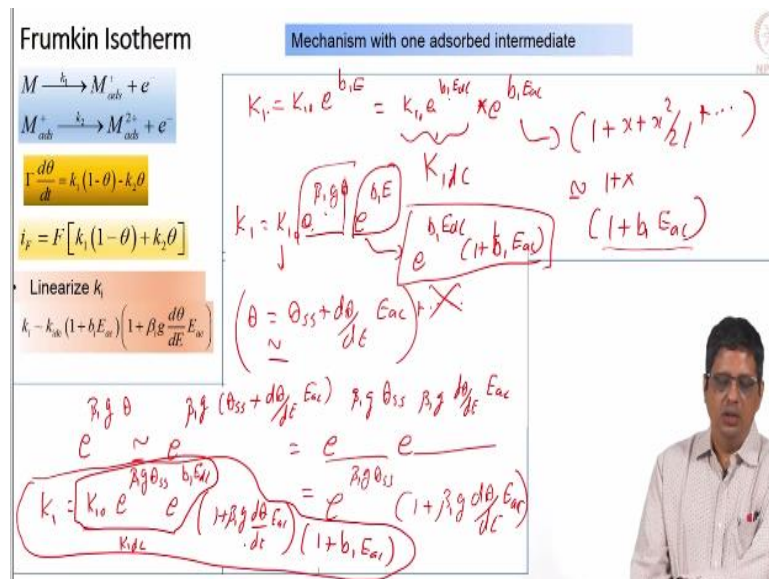 Frumkin Isotherm
Mechanism with one adsorbed intermediate
M —k₁→ M⁺ads + e⁻
M⁺ads —k₂→ M²⁺ads + e⁻
Γ dθ/dt = k₁(1-θ)-k₂θ
i_F = F[k₁(1-θ)+k₂θ]
• Linearize kᵢ
k₁ - k₁dc (1+b₁Eac)(1+β₁g dθ/dE Eac)
K₁ = K₁₀ e^(b₁E) = K₁₀ e^(b₁Edc) * e^(b₁Eac) → (1+x+x²/2! +...)
K₁dc
≈ 1+x
(1+b₁ Eac)
K₁ = K₁₀ e^(β₁gθ) e^(b₁E)
e^(b₁Edc) (1+b₁Eac)
(θ ≈ θss + dθ/dE Eac) + ...
e^(β₁gθ) ≈ e^(β₁g(θss + dθ/dE Eac)) = e^(β₁gθss) e^(β₁g dθ/dE Eac)
= e^(β₁gθss) (1+β₁g dθ/dE Eac)
K₁ = K₁₀ e^(β₁gθss) e^(b₁Edc) (1+β₁g dθ/dE Eac)(1+b₁Eac)
K₁dc